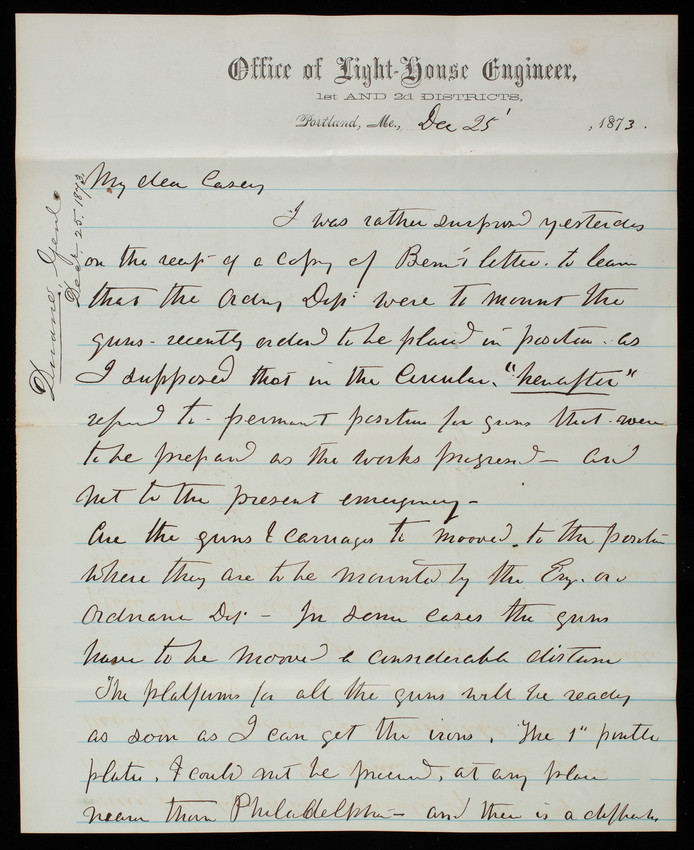 Office of Light-House Engineer,
1st AND 2d DISTRICTS,
Portland, Me., Dec 25 , 1873.
Duane, Genl
Dec. 25. 1873.
My dear Casey
I was rather surprised yesterday
on the rect of a copy of letter. to learn
that the Ordn Dept were to mount the
guns - recently ordered to be placed in position - as
I supposed that in the Circular, "hereafter"
referred to - permanent position for guns that were
to be prepared as the works progressed - and
not to the present emergency -
Are the guns & carriages to mooved to the position
where they are to be mounted by the Eng. or
Ordnance Dept - In some cases the guns
have to be mooved a considerable distance
The platforms for all the guns will be ready
as soon as I can get the irons. The 1" pintle
plates, I could not be procured, at any place
nearer than Philadelphia - and there is a